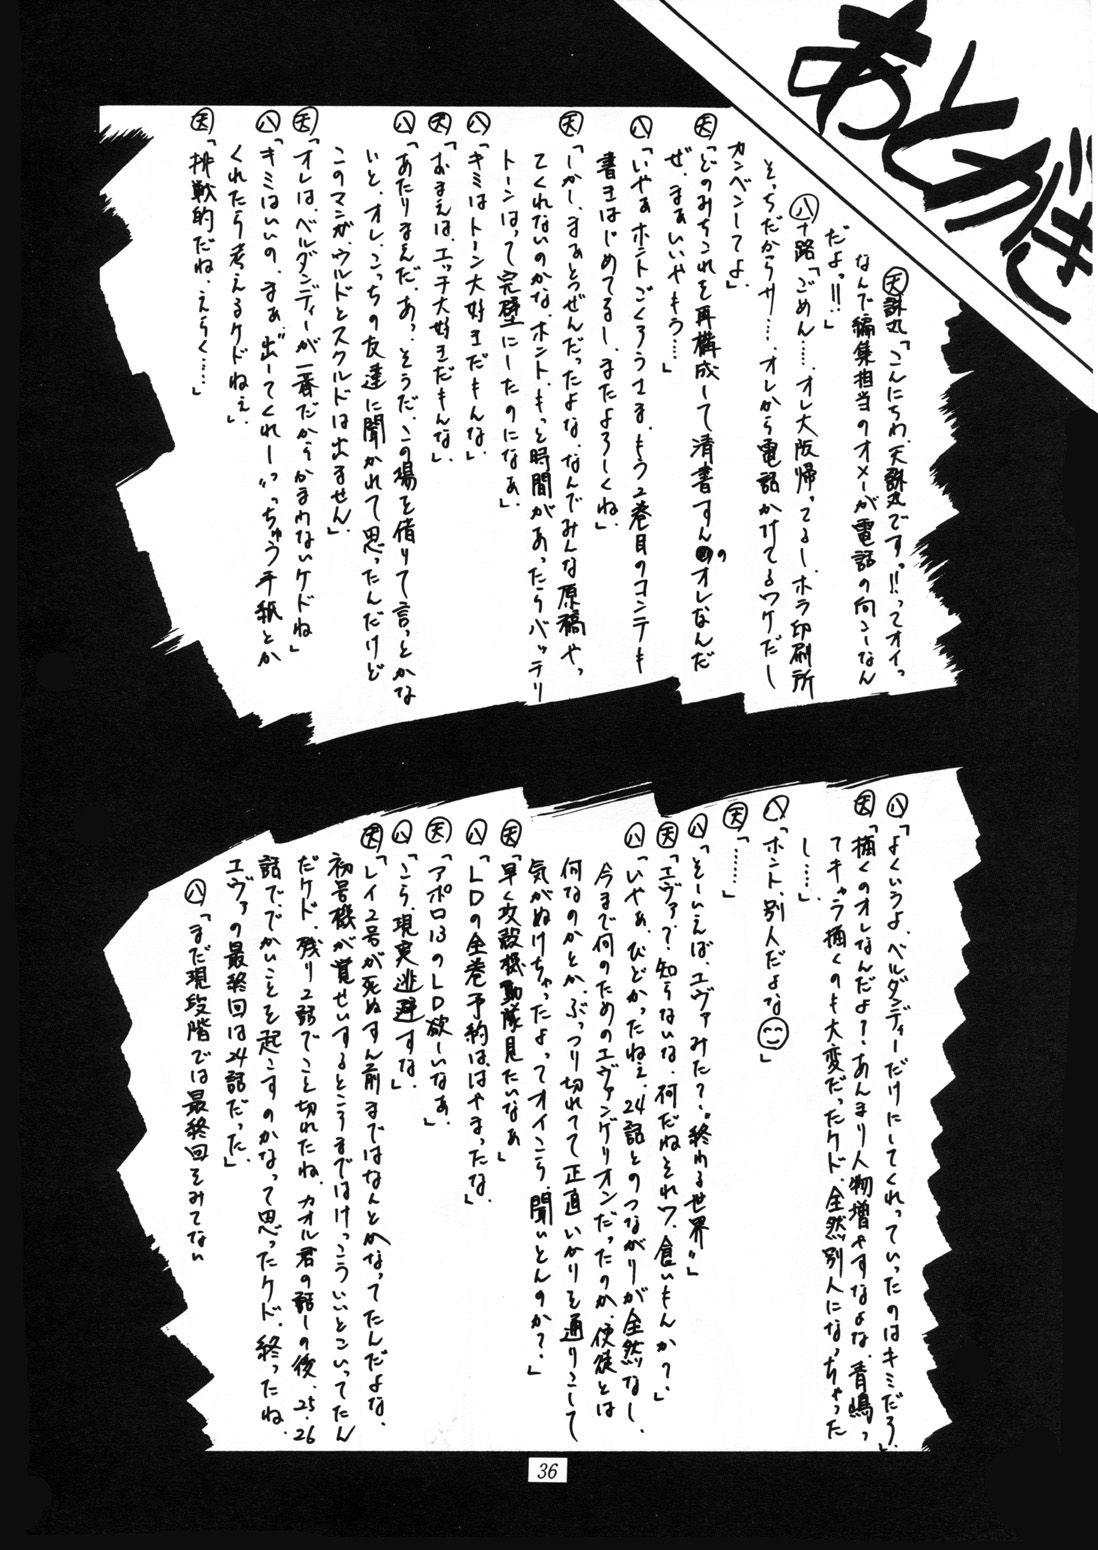 あとがき
㊝天誅丸「こんにちわ、天誅丸ですっ!!ってオイっ
なんで編集担当のオメーが電話の向こーなん
だよっ!!」
㊇十路「ごめん……オレ大阪帰ってるし、ホラ印刷所
そっちだからサ……、オレから電話かけてるワケだし
カンベンしてよ」
天「どのみちこれを再構成して清書すんのオレなんだ
ぜ、まぁいいやもう……」
八「いやぁホントごくろうさま、もう2巻目のコンテも
書きはじめてるし、またよろしくね」
天「しかし、まぁとうぜんだったよな、なんでみんな原稿やっ
てくれないのかな、ホント、もっと時間があったらバッチリ
トーンはって完璧にしたのになぁ」
八「キミはトーン大好きだもんな」
天「おまえは、エッチ大好きだもんな」
八「あたりまえだ、あっ、そうだ、この場を借りて言っとかな
いと、オレ、こっちの友達に聞かれて思ったんだけど
このマンガ、ウルドとスクルドは出ません」
天「オレは、ベルダンディーが一番だからかまわないケドね」
八「キミはいいの、まぁ〝出してくれー〟っちゅう手紙とか
くれたら考えるケドねぇ」
天「挑戦的だね、えらく……」
八「よくいうよ、ベルダンディーだけにしてくれっていったのはキミだろ」
天「描くのオレなんだよ?あんまり人物増やすなよな、青嶋っ
てキャラ描くのも大変だったケド、全然別人になっちゃった
し……」
八「ホント、別人だよな」
天「……」
八「そーいえば、エヴァみた?〝終わる世界〟」
天「エヴァ?知らないな、何だねそれワ、食いもんか?」
八「いやぁ、ひどかったねぇ、24話とのつながりが全然なし、
今まで何のためのエヴァンゲリオンだったのか、使徒とは
何なのかとか、ぶっつり切れてて正直いかりを通りこして
気がぬけちゃったよってオイこら、聞いとんのか?」
天「早く攻殻機動隊見たいなぁ」
八「LDの全巻予約は、はやまったな」
天「アポロ13のLD欲しいなぁ」
八「こら、現実逃避すな」
天「レイ2号が死ぬすん前まではなんとかなってたんだよな、
初号機が覚せいするところまではけっこういいとこいってたん
だケド、残り2話でこと切れたね、カオル君の話しの後、25、26
話で、でかいことを起こすのかなって思ったケド、終ったね、
エヴァの最終回は24話だった」
八「まだ現段階では最終回をみてない
36